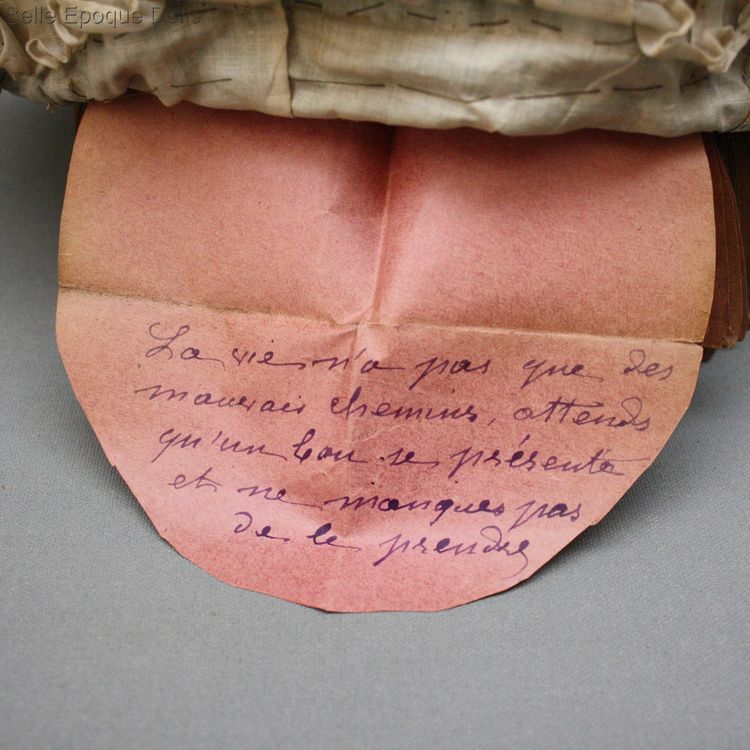 Belle Epoque Dolls
La vie n'a pas que des
mauvais chemins, attends
qu'un bon se présente
et ne manques pas
de le prendre